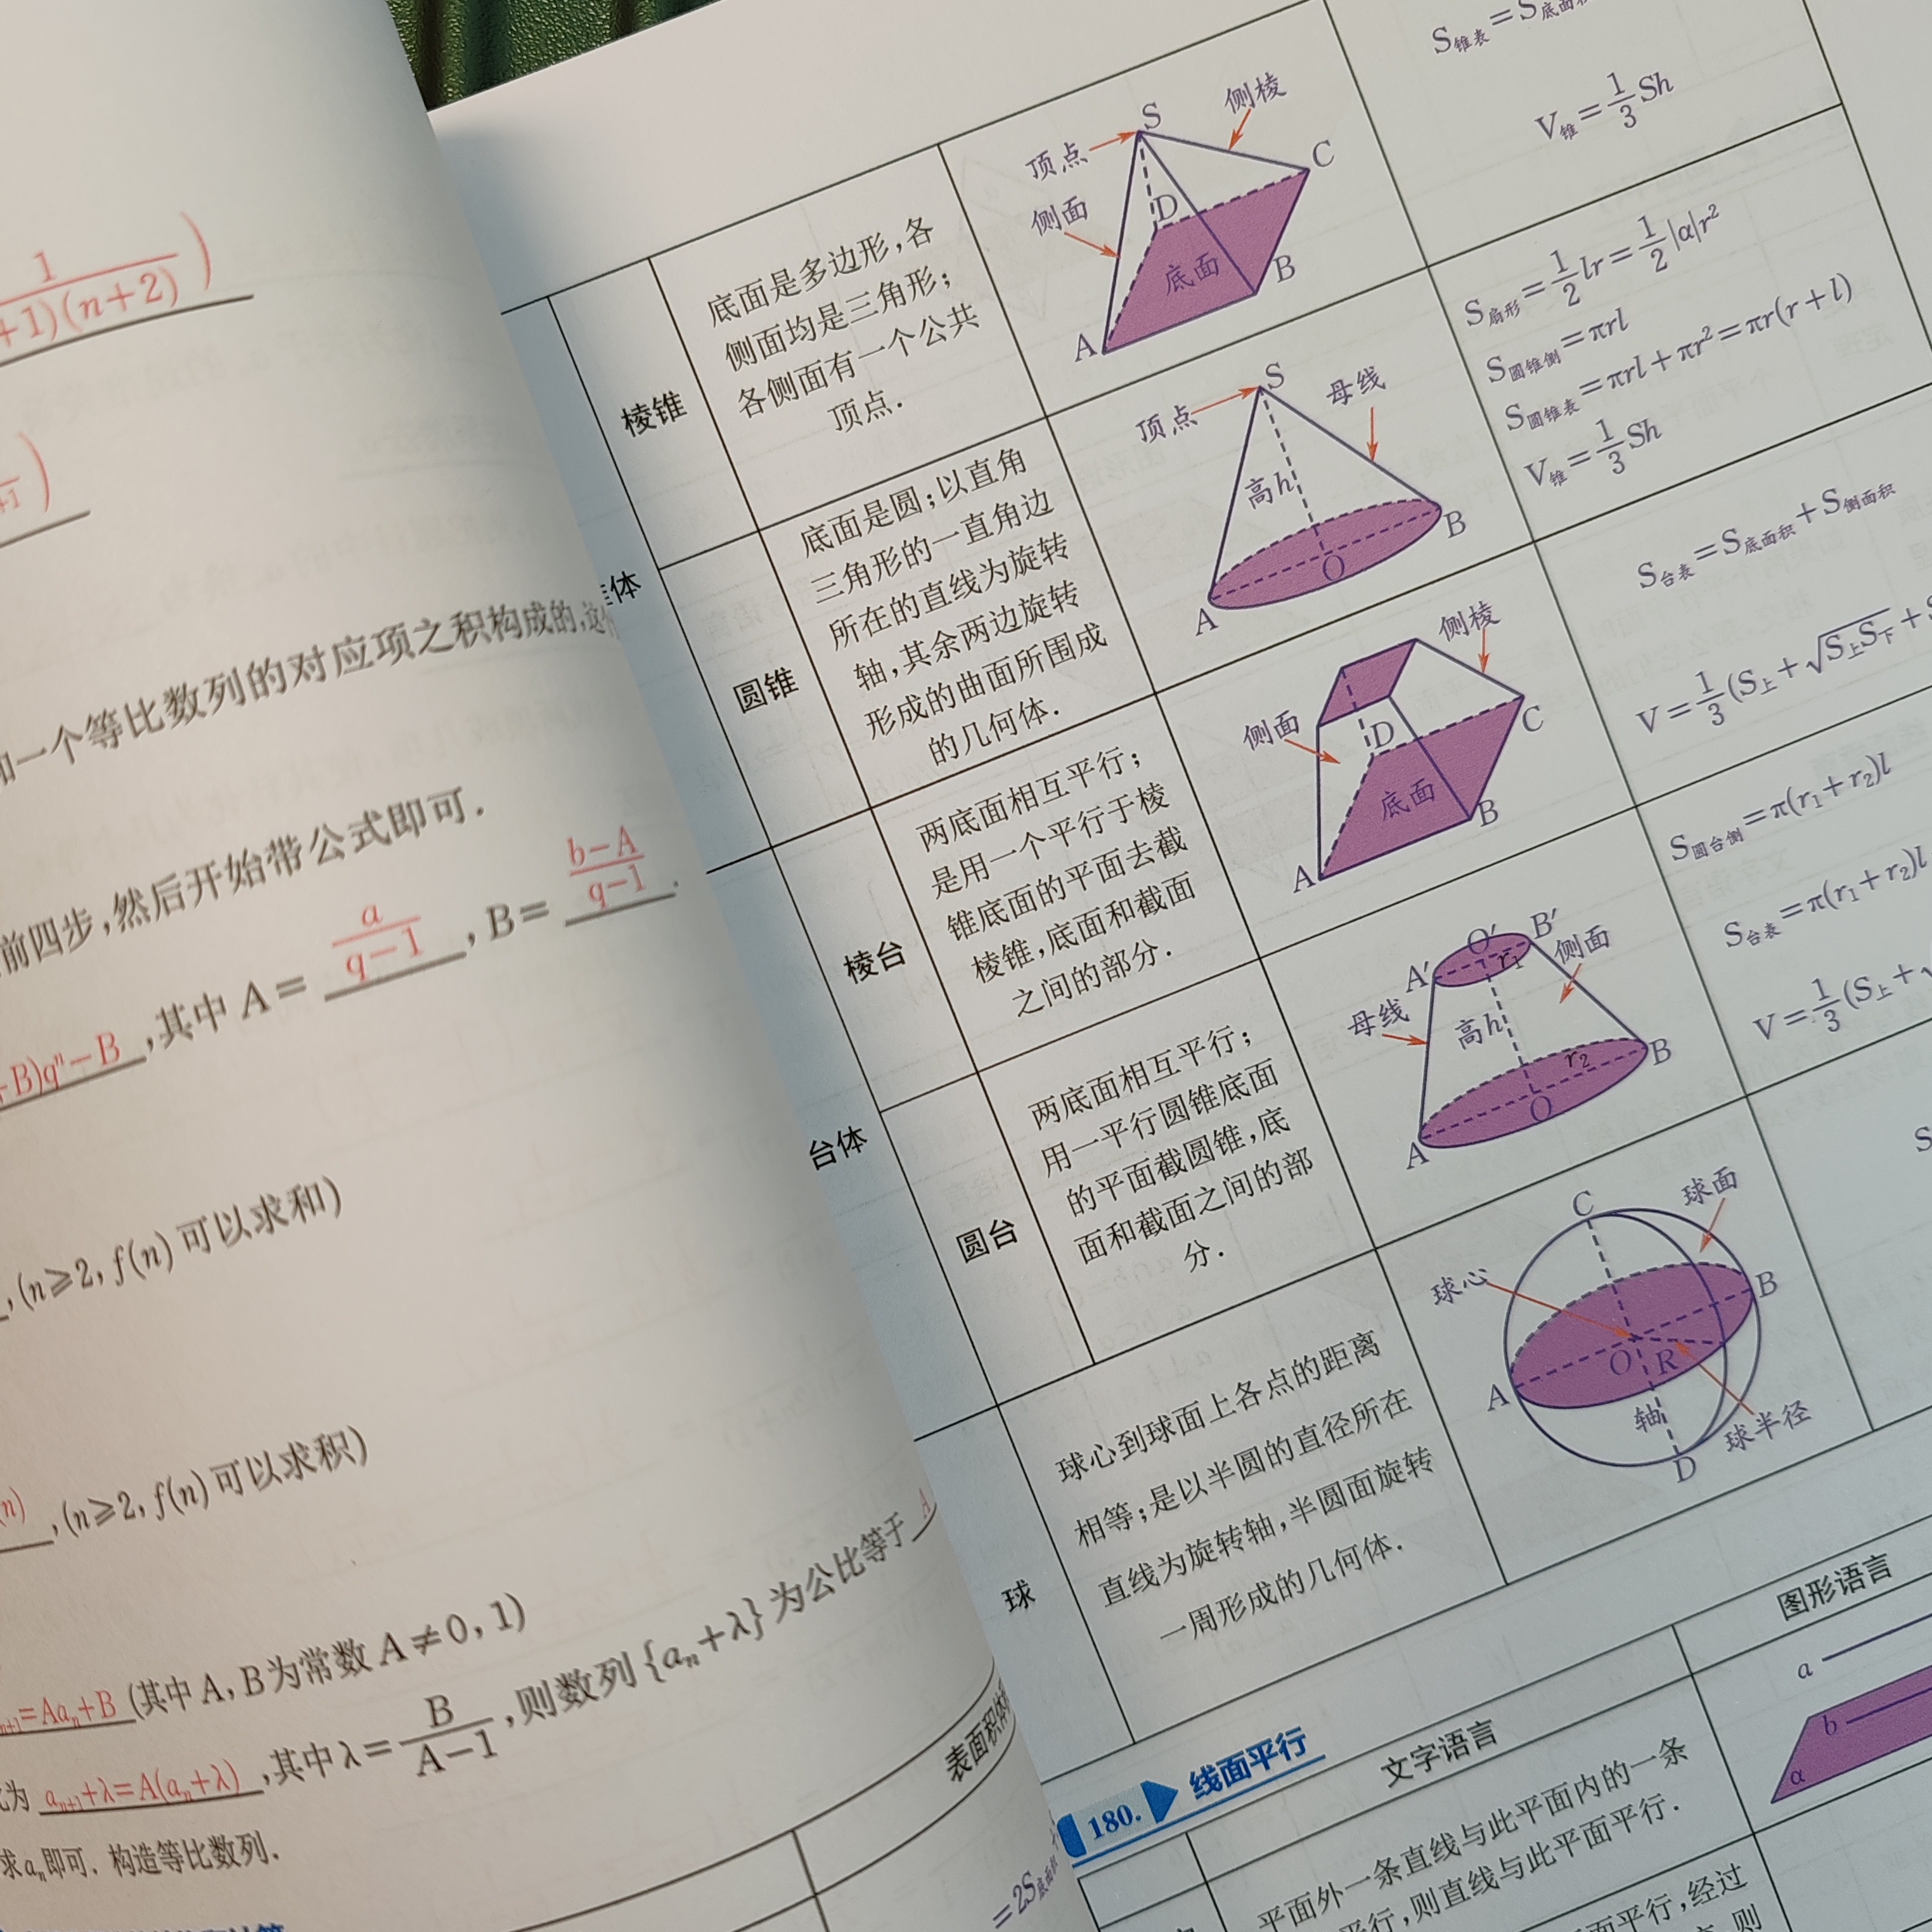 1
+1)(n+2) )
和一个等比数列的对应项之积构成的,这
前四步,然后开始带公式即可.
,其中 A= a/(q-1) , B= (b-A)/(q-1) .
+B)qⁿ-B
,(n≥2, f(n) 可以求和)
(n) ,(n≥2, f(n) 可以求积)
=Aaₙ+B (其中 A, B 为常数 A≠0, 1)
为 aₙ₊₁+λ=A(aₙ+λ) ,其中 λ= B/(A-1) ,则数列 {aₙ+λ} 为公比等于 A
求 aₙ 即可. 构造等比数列.
表面积体
=2S底面积
体
棱锥
底面是多边形,各
侧面均是三角形;
各侧面有一个公共
顶点.
S
侧棱
顶点
C
侧面
D
底面
B
A
S锥表=S底面积
V锥=1/3 Sh
圆锥
底面是圆;以直角
三角形的一直角边
所在的直线为旋转
轴,其余两边旋转
形成的曲面所围成
的几何体.
S
母线
顶点
高h
B
O
A
S扇形=1/2 lr=1/2 |α|r²
S圆锥侧=πrl
S圆锥表=πrl+πr²=πr(r+l)
V锥=1/3 Sh
台体
棱台
两底面相互平行;
是用一个平行于棱
锥底面的平面去截
棱锥,底面和截面
之间的部分.
侧棱
侧面
D
C
底面
B
A
S台表=S底面积+S侧面积
V=1/3(S上+√(S上S下)+S
圆台
两底面相互平行;
用一平行圆锥底面
的平面截圆锥,底
面和截面之间的部
分.
O′
B′
A′
r₁
侧面
母线
高h
r₂
B
O
A
S圆台侧=π(r₁+r₂)l
S台表=π(r₁+r₂)l
V=1/3(S上+√
球
球心到球面上各点的距离
相等;是以半圆的直径所在
直线为旋转轴,半圆面旋转
一周形成的几何体.
C
球面
球心
B
O
R
A
轴
球半径
D
S
180. 线面平行
文字语言
图形语言
平面外一条直线与此平面内的一条
平行,则直线与此平面平行.
面平行,经过
则
a
b
α